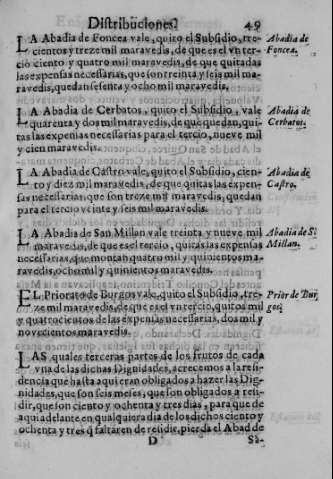 Distribuciones. 49
LA Abadia de Foncea vale, quito el Subsidio, tre-
cientos y treze mil maravedis, de que es el vn ter-
cio ciento y quatro mil maravedis, de que quitadas
las expensas necessarias, que son treinta y seis mil ma-
ravedis, quedan sesenta y ocho mil maravedis.
Abadia de
Foncea.
LA Abadia de Cerbatos, quito el Subsidio, vale
quarenta y dos mil maravedis, de que quedan, qui-
tas las expensas necessarias para el tercio, nueve mil
y cien maravedis.
Abadia de
Cerbatos.
LA Abadia de Castro vale, quito el Subsidio, cien-
to y diez mil maravedis, de que quitas las expen-
sas necessarias, que son treze mil maravedis, quedan
para el tercio veinte y seis mil maravedis.
Abadia de
Castro.
LA Abadia de San Millan vale treinta y nueve mil
maravedis, de que es el tercio, quitas las expensas
necessarias, que montan quatro mil y quinientos ma-
ravedis, ocho mil y quinientos maravedis.
Abadia de S.
Millan.
EL Priorato de Burgos vale, quito el Subsidio, tre-
ze mil maravedis, de que es el vn tercio, quitos mil
y quatrocientos de las expensas necessarias, dos mil y
novecientos maravedis.
Prior de Bur
gos.
LAS quales terceras partes de los frutos de cada
vna de las dichas Dignidades, acrecemos a la resi-
dencia que hasta aqui eran obligados a hazer las Dig-
nidades, que son seis meses, que son obligados a resi-
dir, que son ciento y ochenta y tres dias, para que de
aqui adelante en qualquiera dia de los dichos ciento y
ochenta y tres q̃ faltaren de residir, pierda el Abad de
D Sa-